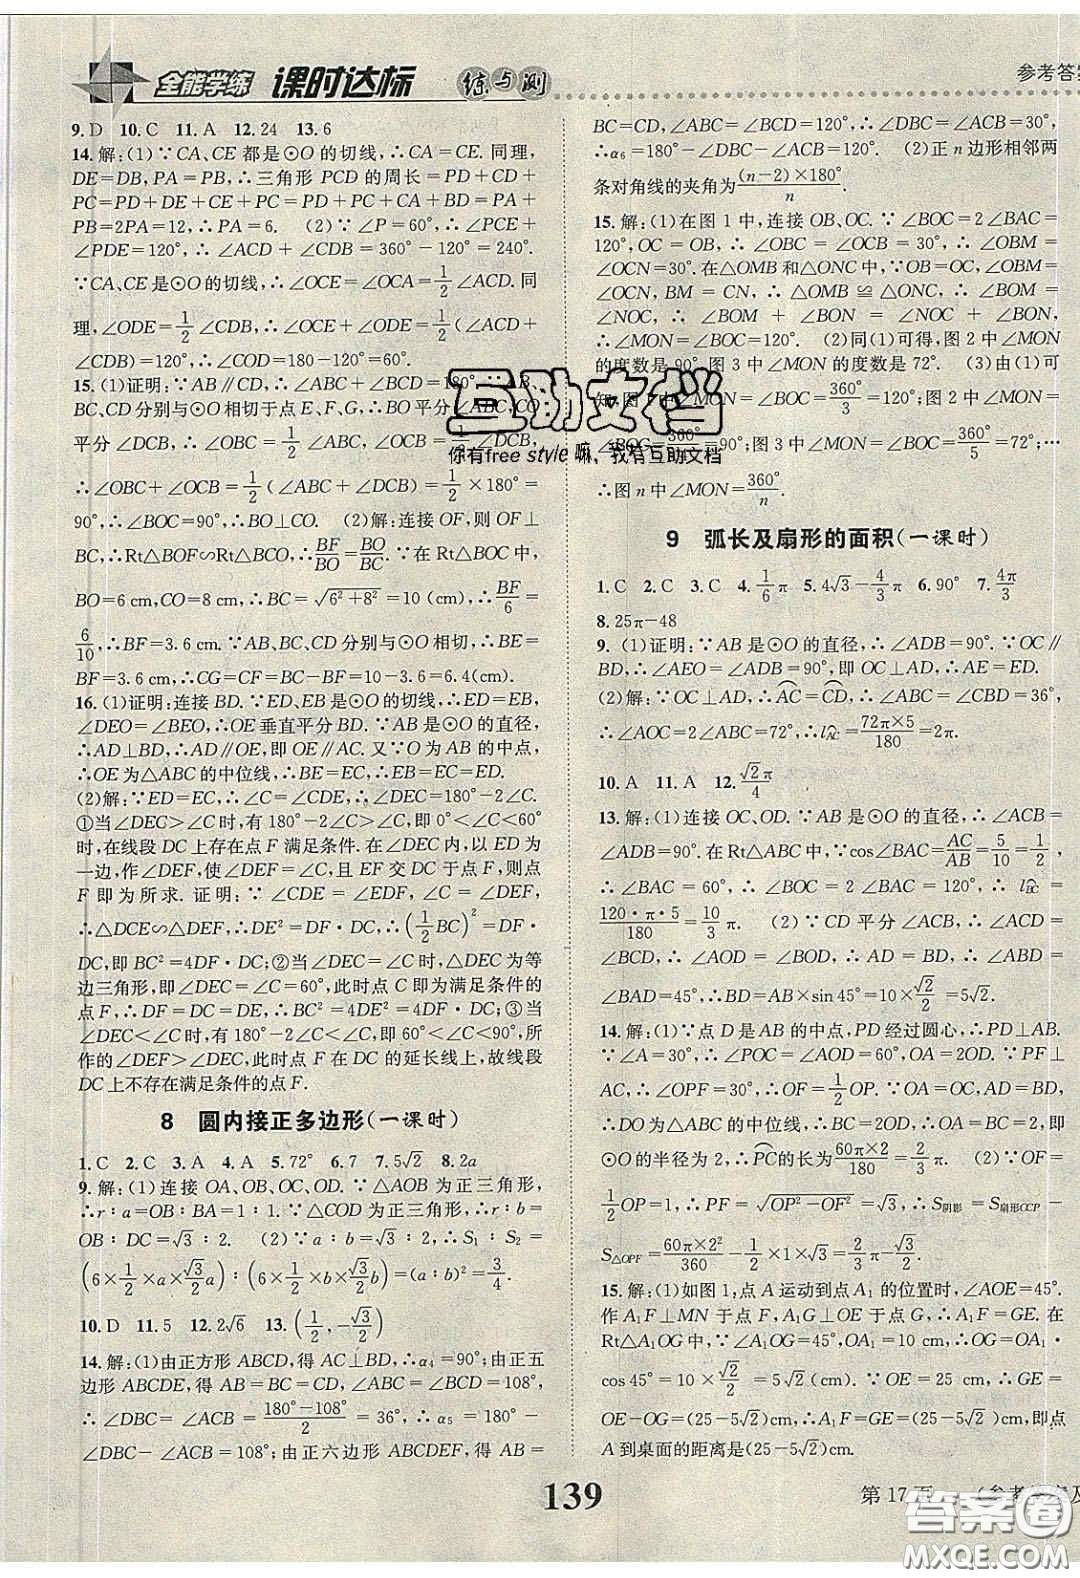 全能学练 课时达标 练与测
参考答案
9.D 10.C 11.A 12.24 13.6
14.解:(1)∵CA、CE 都是⊙O 的切线,∴CA=CE. 同理,
DE=DB,PA=PB,∴三角形 PCD 的周长=PD+CD+
PC=PD+DE+CE+PC=PD+CA+PC+BD=PA+
PB=2PA=12,∴PA=6. (2)∵∠P=60°,∴∠PCE+
∠PDE=120°,∴∠ACD+∠CDB=360°-120°=240°.
∵CA、CE 是⊙O 的切线,∴∠OCE=1/2∠ACD. 同
理,∠ODE=1/2∠CDB,∴∠OCE+∠ODE=1/2(∠ACD+
∠CDB)=120°,∴∠COD=180-120°=60°.
15.(1)证明:∵AB∥CD,∴∠ABC+∠BCD=180°.
BC、CD 分别与⊙O 相切于点 E、F、G,∴BO 平分∠ABC,CO
平分∠DCB,∴∠OBC=1/2∠ABC,∠OCB=1/2∠DCB,
∴∠OBC+∠OCB=1/2(∠ABC+∠DCB)=1/2×180°=
90°,∴∠BOC=90°,∴BO⊥CO. (2)解:连接 OF,则 OF⊥
BC,∴Rt△BOF∽Rt△BCO,∴BF/BO=BO/BC.∵在 Rt△BOC 中,
BO=6 cm,CO=8 cm,∴BC=√(6²+8²)=10(cm),∴BF/6=
6/10,∴BF=3.6 cm.∵AB、BC、CD 分别与⊙O 相切,∴BE=
BF=3.6 cm,∴CG=CF=BC-BF=10-3.6=6.4(cm).
16.(1)证明:连接 BD.∵ED、EB 是⊙O 的切线,∴ED=EB,
∠DEO=∠BEO,∴OE 垂直平分 BD.∵AB 是⊙O 的直径,
∴AD⊥BD,∴AD∥OE,即 OE∥AC. 又∵O 为 AB 的中点,
∴OE 为△ABC 的中位线,∴BE=EC,∴EB=EC=ED.
(2)解:∵ED=EC,∴∠C=∠CDE,∴∠DEC=180°-2∠C.
①当∠DEC>∠C 时,有 180°-2∠C>∠C,即 0°<∠C<60°
时,在线段 DC 上存在点 F 满足条件.在∠DEC 内,以 ED 为
一边,作∠DEF,使∠DEF=∠C,且 EF 交 DC 于点 F,则点
F 即为所求. 证明:∵∠CDE=∠EDF,∠C=∠DEF,
∴△DCE∽△DEF,∴DE²=DF·DC,∴(1/2BC)²=DF·
DC,即 BC²=4DF·DC;②当∠DEC=∠C 时,△DEC 为等
边三角形,即∠DEC=∠C=60°,此时点 C 即为满足条件的
点 F,∴DF=DC=DE,此时仍有 BC²=4DF·DC;③当
∠DEC<∠C 时,有 180°-2∠C<∠C,即 60°<∠C<90°,所
作的∠DEF>∠DEC,此时点 F 在 DC 的延长线上,故线段
DC 上不存在满足条件的点 F.
8 圆内接正多边形(一课时)
1.C 2.C 3.A 4.A 5.72° 6.7 7.5√2 8.2a
9.解:(1)连接 OA、OB、OC、OD.∵△AOB 为正三角形,
∴r∶a=OB∶BA=1∶1.∵△COD 为正三角形,∴r∶b=
OB∶DC=√3∶2. (2)∵a∶b=√3∶2,∴S₁∶S₂=
(6×1/2×a×√3/2a)∶(6×1/2×b×√3/2b)=(a∶b)²=3/4.
10.D 11.5 12.2√6 13.(1/2,-√3/2)
14.解:(1)由正方形 ABCD,得 AC⊥BD,∴α₄=90°;由正五
边形 ABCDE,得 AB=BC=CD,∠ABC=∠BCD=108°,
∴∠ACB=∠DBC=(180°-108°)/2=36°,∴α₅=180°-
∠DBC-∠ACB=108°;由正六边形 ABCDEF,得 AB=
BC=CD,∠ABC=∠BCD=120°,∴∠DBC=∠ACB=30°,
∴α₆=180°-∠DBC-∠ACB=120°. (2)正 n 边形相邻两
条对角线的夹角为(n-2)×180°/n.
15.解:(1)在图 1 中,连接 OB、OC.∵∠BOC=2∠BAC=
120°,OC=OB,∴∠OBC=∠OCB=30°,∴∠OBM=
∠OCN=30°.在△OMB 和△ONC 中,∵OB=OC,∠OBM=
∠OCN,BM=CN,∴△OMB≌△ONC,∴∠BOM=
∠NOC,∴∠BOM+∠BON=∠NOC+∠BON,∴∠MON
的度数是 90°,图 3 中∠MON 的度数是 72°. (3)由(1)可
知,图 1 中∠MON=∠BOC=360°/3=120°;图 2 中∠MON=
∠BOC=360°/4=90°;图 3 中∠MON=∠BOC=360°/5=72°;…
∴图 n 中∠MON=360°/n.
9 弧长及扇形的面积(一课时)
1.C 2.C 3.C 4.1/6π 5.4√3-4/3π 6.90° 7.4π/3
8.25π-48
9.(1)证明:∵AB 是⊙O 的直径,∴∠ADB=90°.∵OC∥
BD,∴∠AEO=∠ADB=90°,即 OC⊥AD,∴AE=ED.
(2)解:∵OC⊥AD,∴AC=CD,∴∠ABC=∠CBD=36°,
∴∠AOC=2∠ABC=72°,∴l_AC=72π×5/180=2π.
10.A 11.A 12.√2π/4
13.解:(1)连接 OC、OD.∵AB 是⊙O 的直径,∴∠ACB=
∠ADB=90°.在 Rt△ABC 中,∵cos∠BAC=AC/AB=5/10=1/2,
∴∠BAC=60°,∴∠BOC=2∠BAC=120°,∴l_BC=
120·π·5/180=10/3π. (2)∵CD 平分∠ACB,∴∠ACD=
∠BCD,∴∠AOD=∠BOD,∴AD=BD,∴∠ABD=
∠BAD=45°,∴BD=AB×sin 45°=10×√2/2=5√2.
14.解:(1)∵点 D 是 AB 的中点,PD 经过圆心,∴PD⊥AB.
∵∠A=30°,∴∠POC=∠AOD=60°,OA=2OD.∵PF⊥
AC,∴∠OPF=30°,∴OF=1/2OP.∵OA=OC,AD=BD,
∴DO 为△ABC 的中位线,∴BC=2OD,∴OA=BC=2,即
⊙O 的半径为 2,∴PC的长为60π×2/180=2/3π. (2)∵OF=
1/2OP=1,∴PF=√(OP²-OF²)=√3,∴S阴影=S扇形OCP-
S△OPF=60π×2²/360-1/2×1×√3=2/3π-√3/2.
15.解:(1)如图 1,点 A 运动到点 A₁ 的位置时,∠AOE=45°.
作 A₁F⊥MN 于点 F,A₁G⊥OE 于点 G,∴A₁F=GE.在
Rt△A₁OG 中,∵∠A₁OG=45°,OA₁=10 cm,∴OG=OA₁·
cos 45°=10×√2/2=5√2(cm).∵OE=25 cm,∴GE=
OE-OG=(25-5√2)cm,∴A₁F=GE=(25-5√2)cm,即点
A 到桌面的距离是(25-5√2)cm.
互助文档
你有free style 嘛,我有互助文档
139
第 17 页
答案圈
MXQE.COM